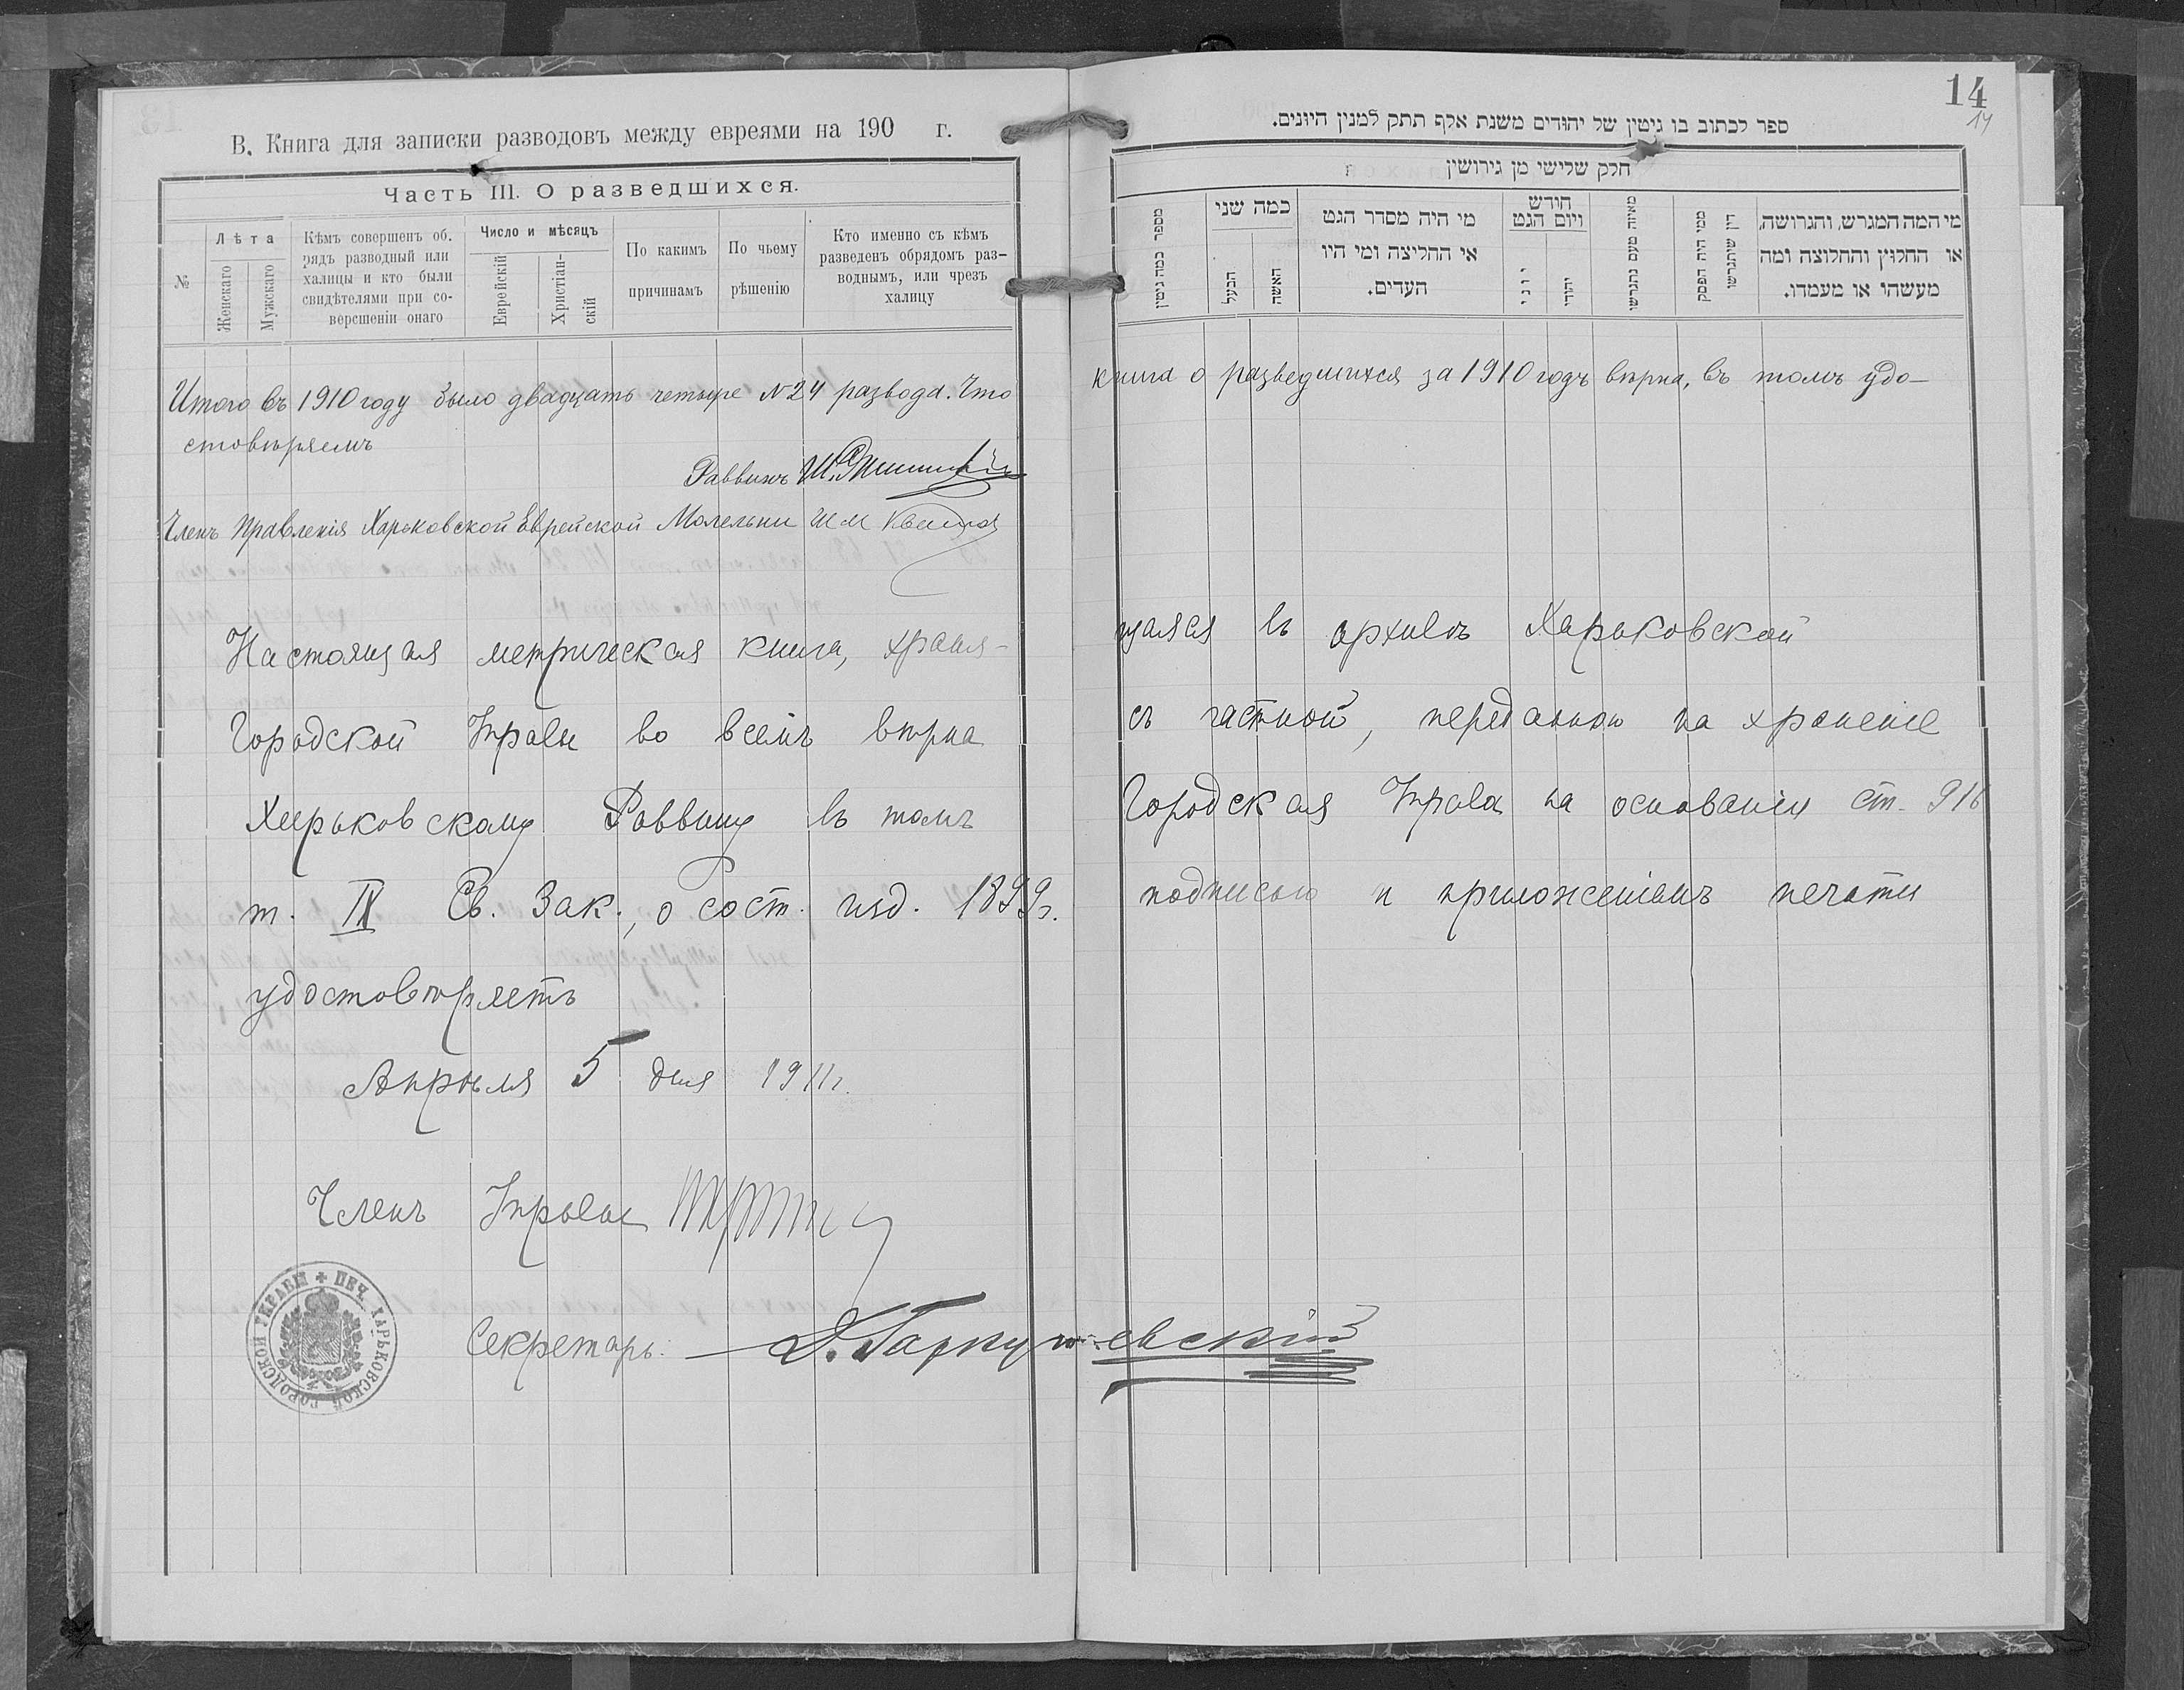 В. Книга для записки разводовъ между евреями на 190 г.
Часть III. О разведшихся.
№
Лѣта
Женскаго
Мужскаго
Кѣмъ совершенъ об.
рядъ разводный или
халицы и кто были
свидѣтелями при со-
вершеніи онаго
Число и мѣсяцъ
Еврейскій
Христіан-
скій
По какимъ
причинамъ
По чьему
рѣшенію
Кто именно съ кѣмъ
разведенъ обрядомъ раз-
воднымъ, или чрезъ
халицу
14
14
ספר לכתוב בו גיטין של יהודים משנת אלף תתק למנין היונים.
חלק שלישי מן גירושין
מספר כמה גיטין
כמה שני
הבעל
האשה
מי היה מסדר הגט
או החליצה ומי היו
העדים.
חודש
ויום הגט
יוני
יהודי
מאיזה טעם נתגרשו
ממי היה הפסק
דין שיתגרשו
מי המה המגרש, והגרושה,
או החלוץ והחלוצה ומה
מעשהו או מעמדו.
Итого въ 1910 году было двадцать четыре №24 развода. Что книга о разведшихся за 1910 годъ вѣрна, въ томъ удо-
стовѣряемъ
Раввинъ
Членъ Правленія Харьковской Еврейской Молельни ШМ Кваша
Настоящая метрическая книга, храня- щаяся въ архивѣ Харьковской
Городской Управы во всемъ вѣрна съ частной, переданною на храненіе
Харьковскому Раввину въ томъ Городская Управа на основаніи ст. 916
т. IX Св. Зак., о сост. изд. 1899г. подписью и приложеніемъ печати
удостовѣряетъ
Апрѣля 5 дня 1911г.
Членъ Управы
ПЕЧ. ХАРЬКОВСКОЙ ГОРОДСКОЙ УПРАВЫ
Секретарь: